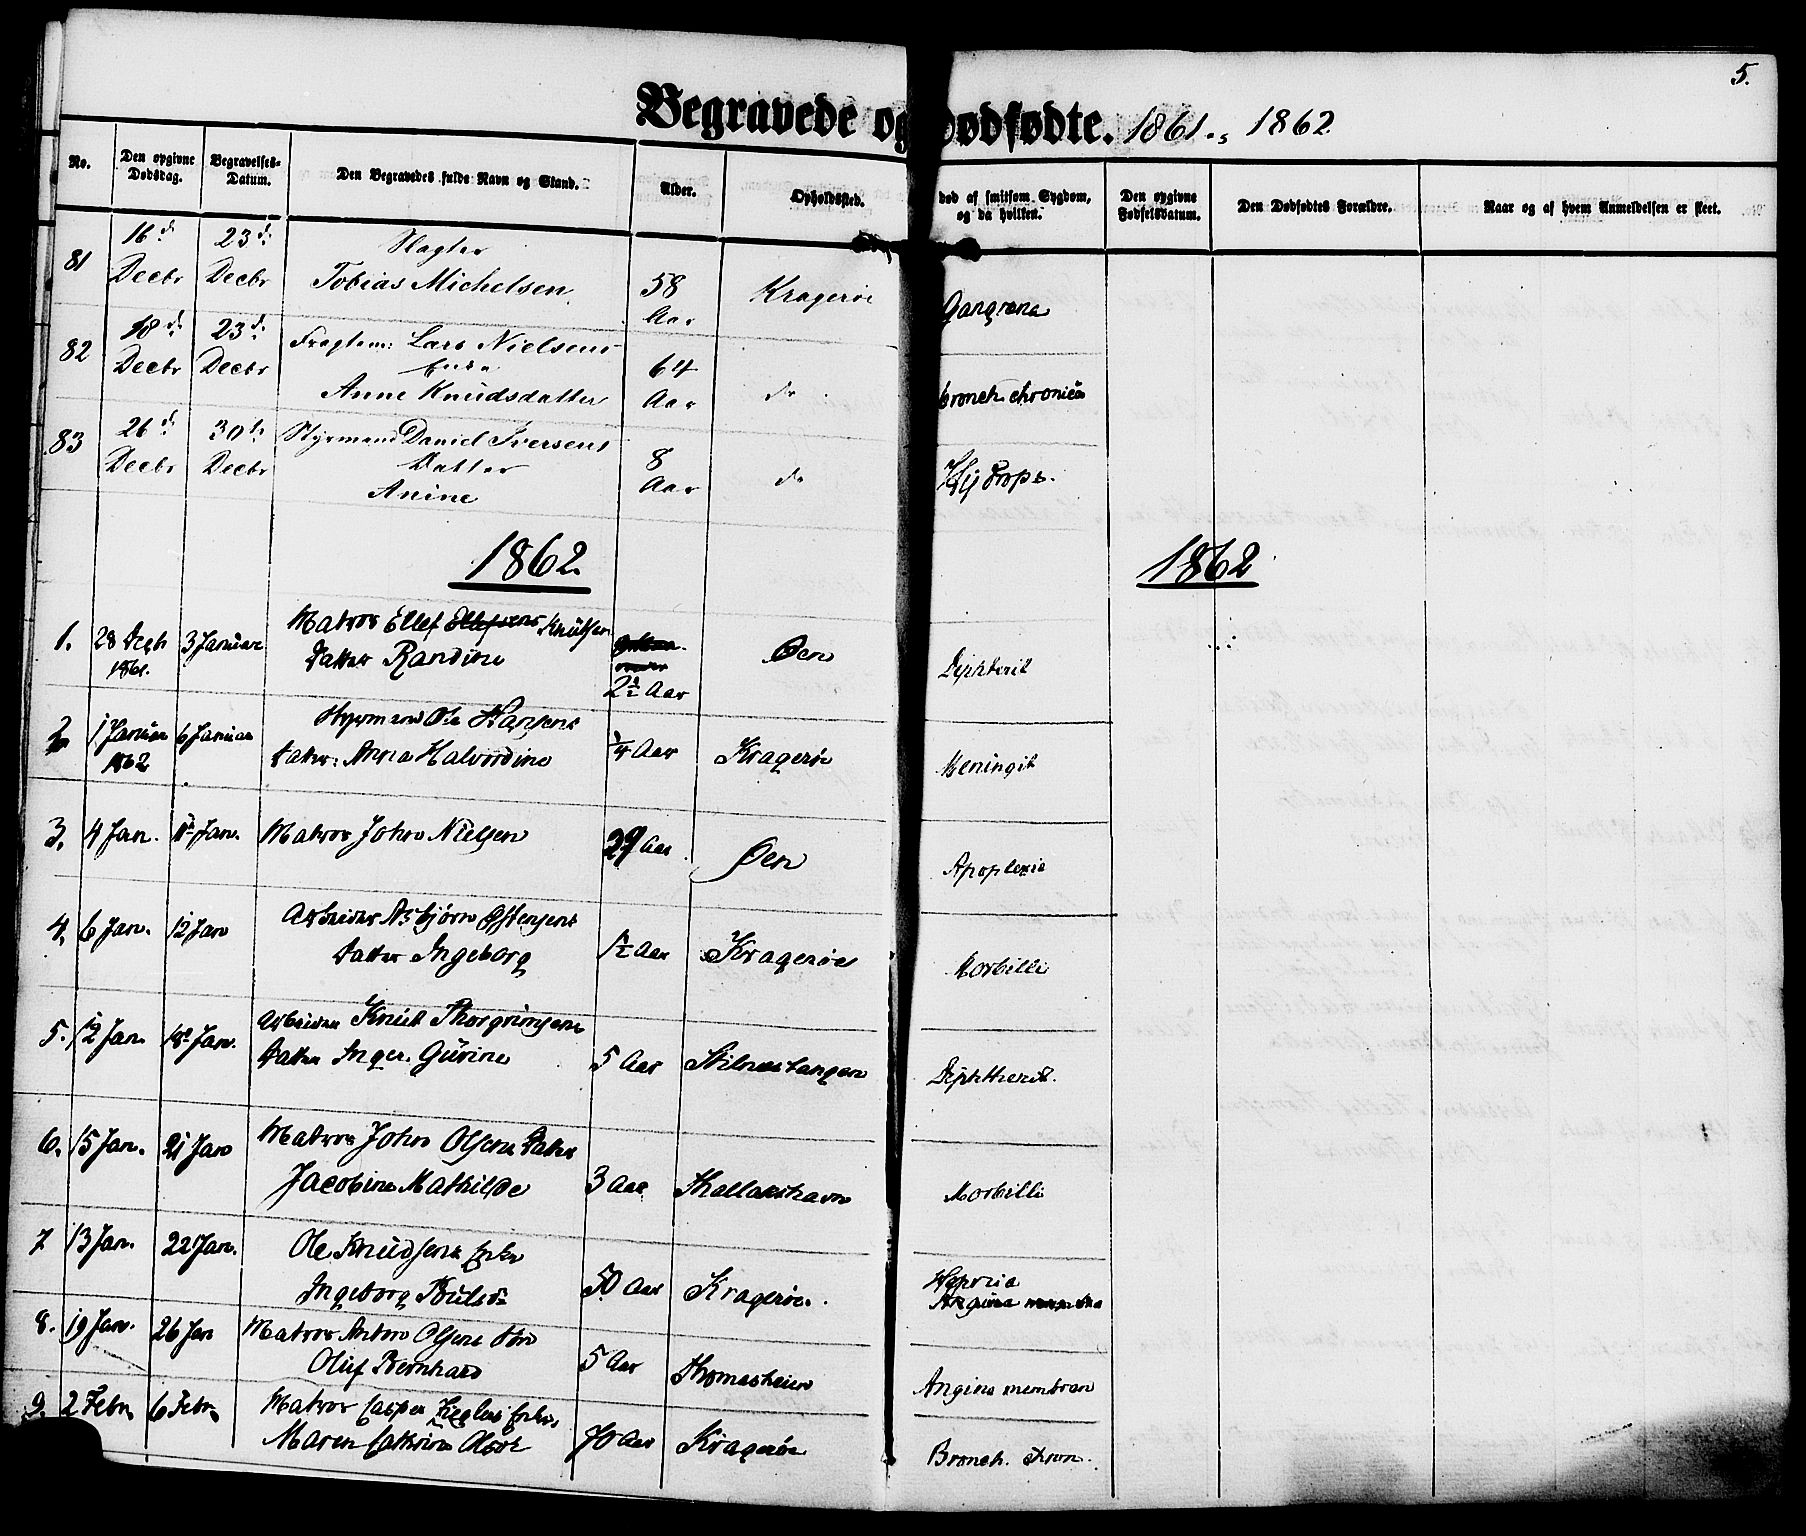 5.
Begravede og Dødfødte. 1861 & 1862
No. Den opgivne Dødsdag. Begravelses-Datum. Den Begravedes fulde Navn og Stand. Alder. Opholdssted. død af smitsom Sygdom, og da hvilken. Den opgivne Fødselsdatum. Den Dødfødtes Forældre. Naar og af hvem Anmeldelsen er skeet.
81 16d Decbr 23d Decbr Slagter
Tobias Michelsen 58 Aar Kragerøe Gangræna
82 18d Decbr 23d Decbr Fragtem: Lars Nielsens
Enke
Anne Knudsdatter 64 Aar do bronch. chronica
83 26d Decbr 30te Decbr Styrmand Daniel Iversens
Datter
Anine 8 Aar do Hydrops.
1862. 1862
1. 28 Decbr 1861. 3 Januar Matros Ellef Ellefsens Knutsen
Datter Randine 2½ Aar Øen Diphterit
2 1 Januar 1862 6 Januar Styrmand Ole Hansens
Datter: Anna Halvordine ¾ Aar Kragerøe Meningit
3. 4 Jan. 11 Jan. Matros John Nielsen 29 Aar Øen Apoplexie
4. 6 Jan. 12 Jan Arbeider Asbjørn Ostensens
Datter Ingeborg ½ Aar Kragerøe Morbilli
5. 12 Jan. 18 Jan. Arbeider Knut Thorgrimsens
Datter Inger Gurine 5 Aar Stilnestangen Diphtherit.
6. 15 Jan. 21 Jan Matros John Olsens Datter
Jacobine Mathilde 3 Aar Skallershavn Morbilli
7 13 Jan. 22 Jan. Ole Knudsens Enke
Ingeborg Pouls. 50 Aar Kragerøe.
8. 19 Jan. 26 Jan Matros Anton Olsens Søn
Oluf Bernhard 5 Aar Thomesheien Angina membran
9. 2 Febr. 6 Febr. Matros Casper Zieglers Enke,
Maren Cathrine Olsdt. 70 Aar Kragerøe Bronch. chron.